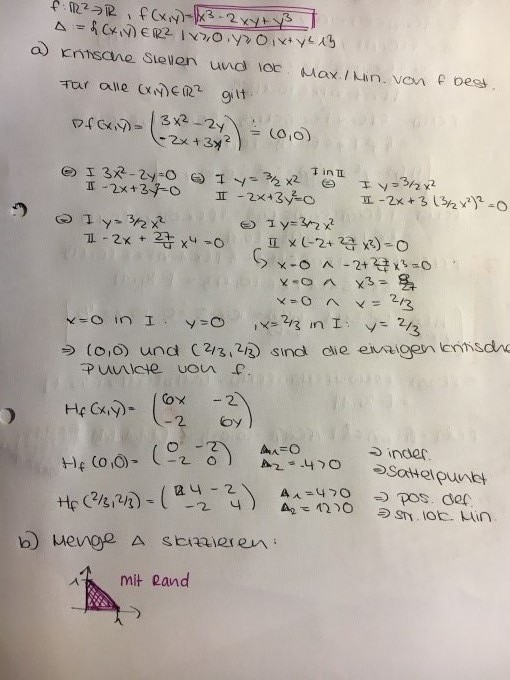 f: ℝ²→ℝ, f(x,y)= x³-2xy+y³
Δ = {(x,y) ∈ ℝ² | x≥0, y≥0, x+y≤1}
a) Kritische Stellen und lok. Max./Min. von f best.
Für alle (x,y)∈ℝ² gilt:
Df(x,y) = (3x²-2y / -2x+3y²) != (0,0)
⇔ I 3x²-2y=0 ⇔ I y=3/2 x² I in II ⇔ I y=3/2 x²
II -2x+3y²=0 II -2x+3y²=0 II -2x+3(3/2x²)²=0
⇔ I y=3/2 x² ⇔ I y=3/2 x²
II -2x + 27/4 x⁴=0 II x(-2+ 27/4 x³)=0
↳ x=0 ∧ -2+ 27/4 x³=0
x=0 ∧ x³= 8/27
x=0 ∧ x = 2/3
x=0 in I: y=0 , x=2/3 in I: y=2/3
⇒ (0,0) und (2/3,2/3) sind die einzigen kritische
Punkte von f.
Hf(x,y)= (6x -2 / -2 6y)
Hf(0,0)= (0 -2 / -2 0) Δ₁=0 ⇒ indef.
Δ₂=-4>0 ⇒ Sattelpunkt
Hf(2/3,2/3)= (4 -2 / -2 4) Δ₁=4>0 ⇒ pos. def.
Δ₂=12>0 ⇒ str. lok. Min.
b) Menge Δ skizzieren:
1 mit Rand
1